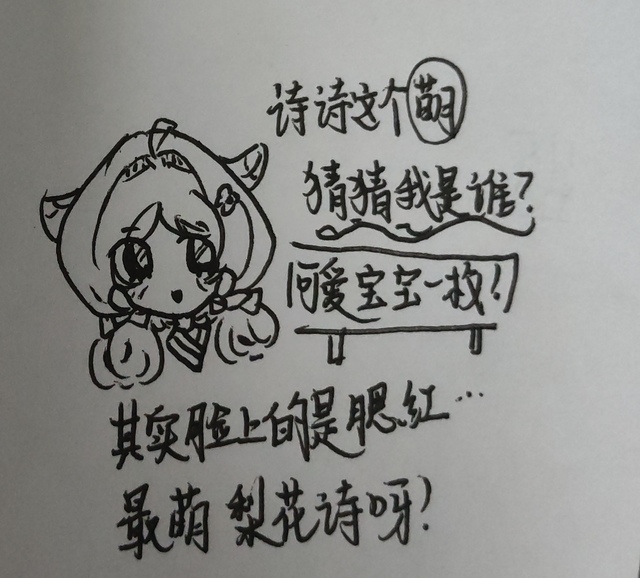 诗诗这个萌
猜猜我是谁?
可爱宝宝一枚!
其实脸上的是腮红…
最萌梨花诗呀!